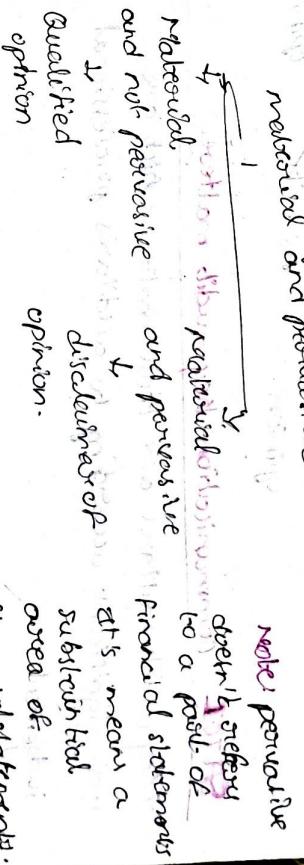 material and
Material
and not pervasive
Qualified
opinion
Material
and pervasive
disclaimer of
opinion.
Note: pervasive
doesn't refers
to a part of
financial statements
it's means a
substaintial
area of
statements.